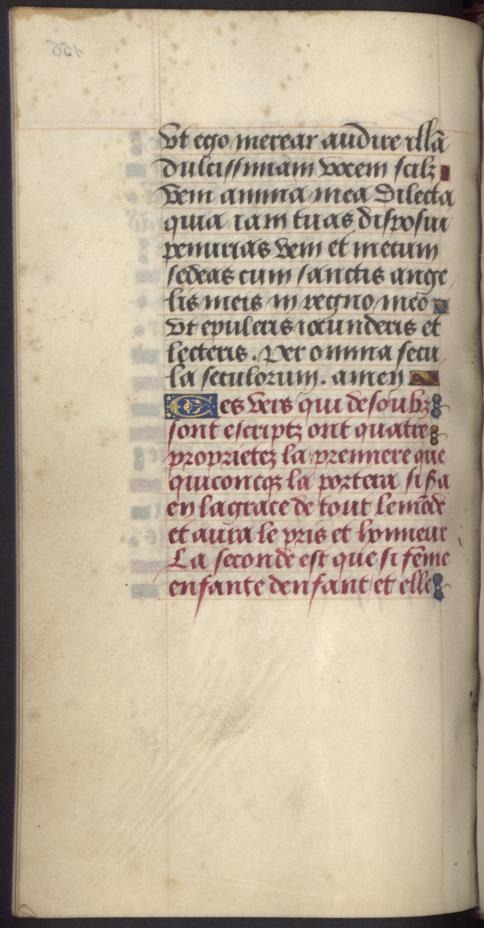 Ut ego merear audire illã
dulcissimam vocem scilz
Veni anima mea Dilecta
quia iam tuas disposui
penurias Veni et mecum
sedeas cum sanctis ange
lis meis in regno meo
Ut epuleris iocunderis et
lecteris. Per omnia secu
la seculorum. amen
Ces Vers qui desoubz
sont escriptz ont quatre
proprietez la premiere que
quiconcqz la portera si sa
en la grace de tout le mõde
et aura le pris et honneur
La seconde est que si fẽme
enfante denfant et elle